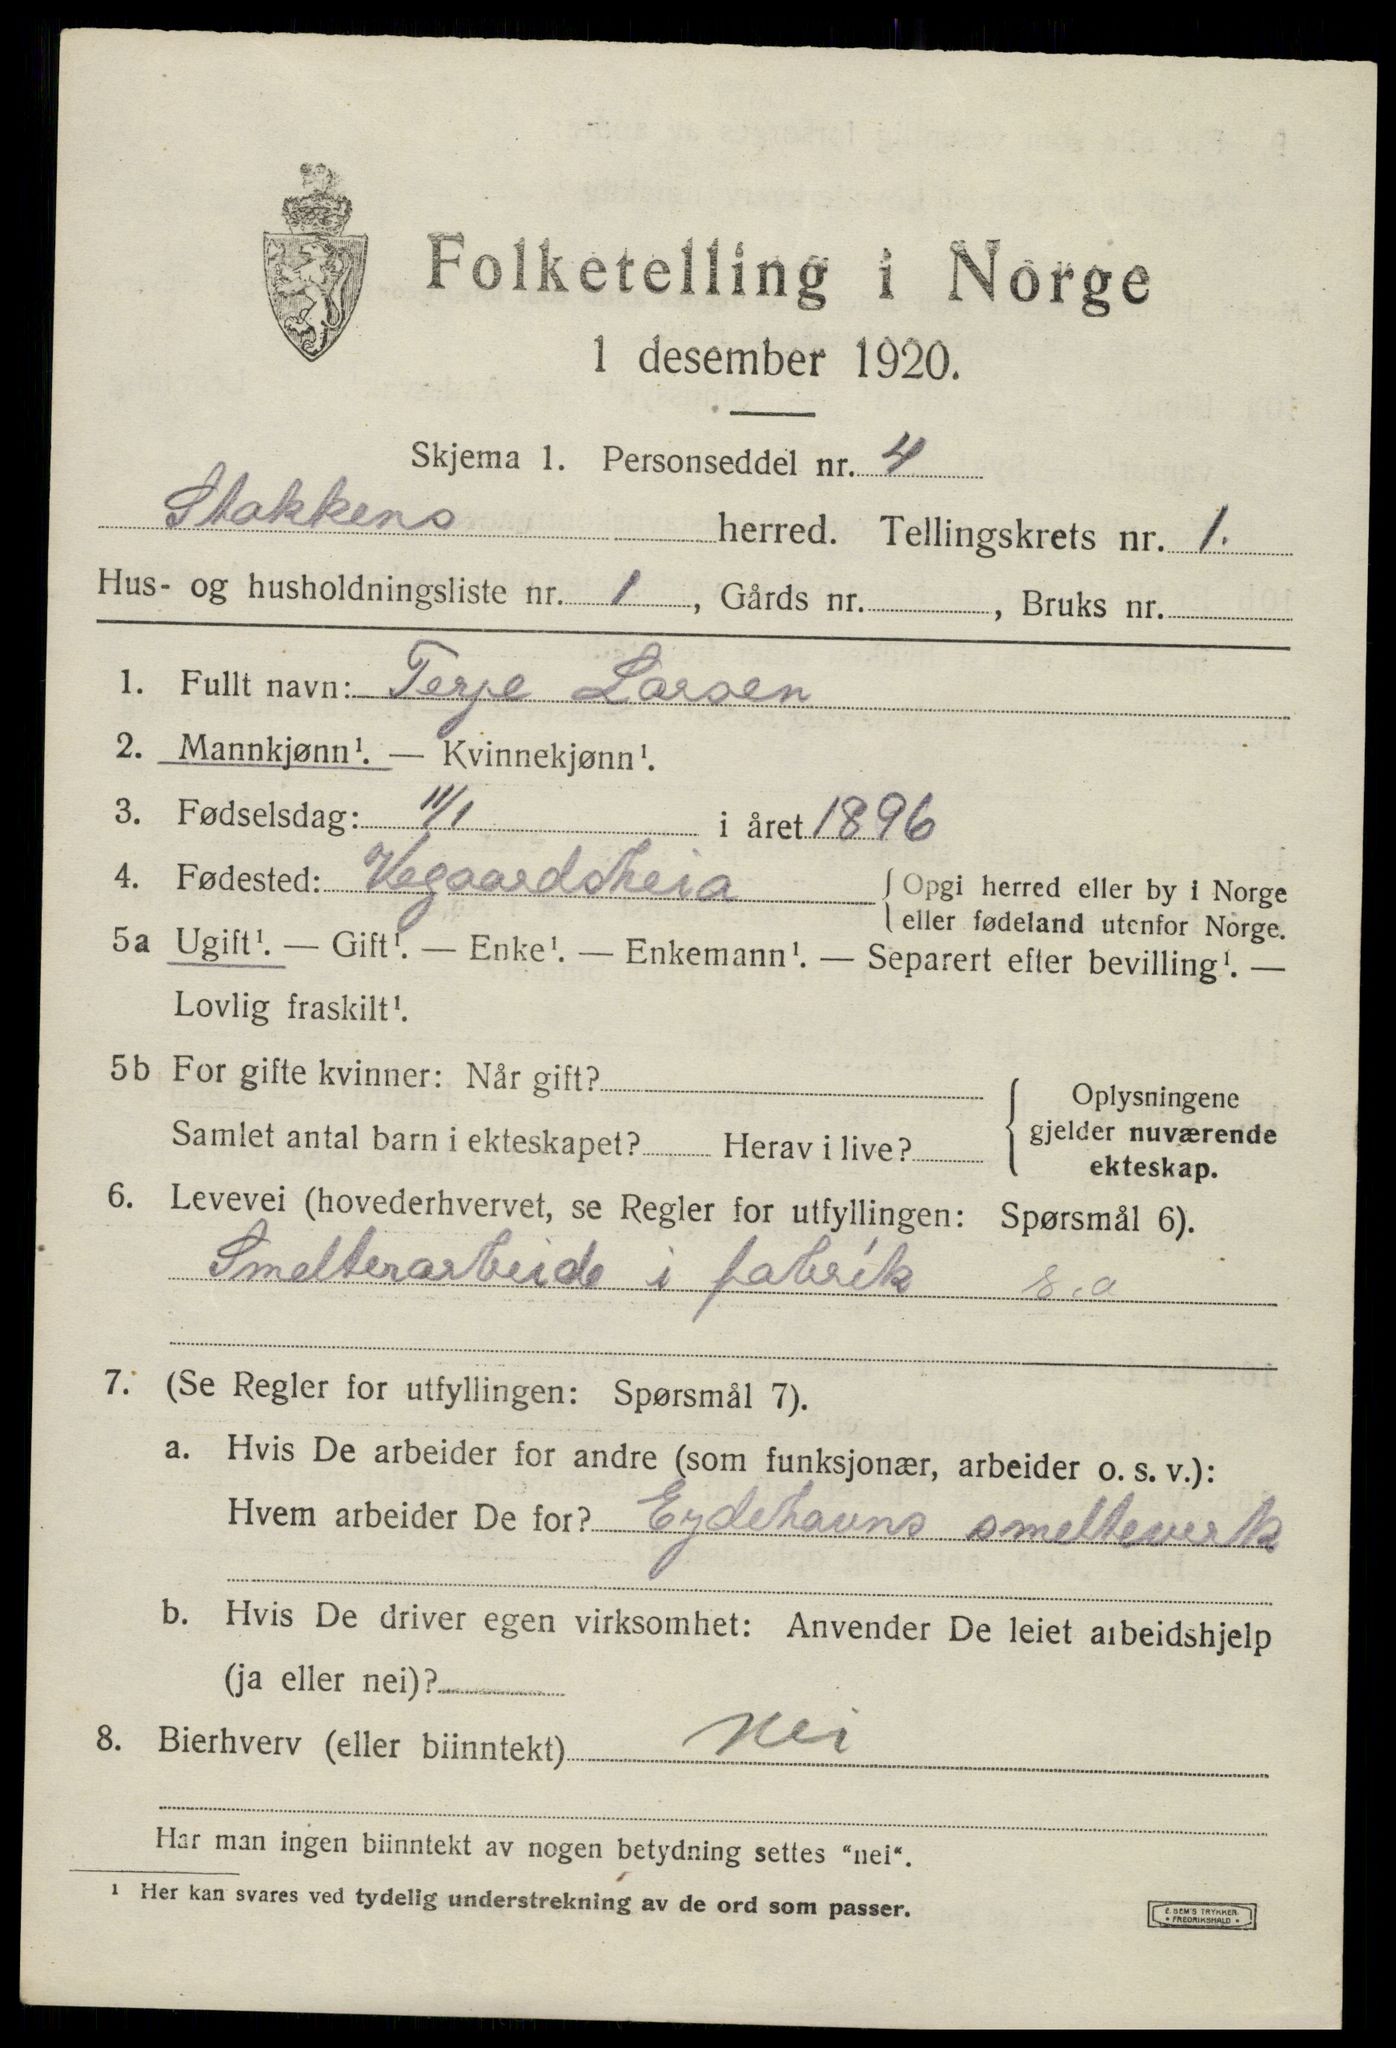 Folketelling i Norge
1 desember 1920.
Skjema 1. Personseddel nr. 4
Stokkens herred. Tellingskrets nr. 1.
Hus- og husholdningsliste nr. 1, Gårds nr. , Bruks nr.
1. Fullt navn: Terje Larsen
2. Mannkjønn¹. — Kvinnekjønn¹.
3. Fødselsdag: 11/1 i året 1896
4. Fødested: Vegaardsheia { Opgi herred eller by i Norge
eller fødeland utenfor Norge.
5a Ugift¹. — Gift¹. — Enke¹. — Enkemann¹. — Separert efter bevilling¹. —
Lovlig fraskilt¹.
5b For gifte kvinner: Når gift?
Samlet antal barn i ekteskapet? Herav i live?
{ Oplysningene
gjelder nuværende
ekteskap.
6. Levevei (hovederhvervet, se Regler for utfyllingen: Spørsmål 6).
Smelterarbeide i fabrik s.a
7. (Se Regler for utfyllingen: Spørsmål 7).
a. Hvis De arbeider for andre (som funksjonær, arbeider o. s. v.):
Hvem arbeider De for? Eydehavns smelteverk
b. Hvis De driver egen virksomhet: Anvender De leiet arbeidshjelp
(ja eller nei)?
8. Bierhverv (eller biinntekt) nei
Har man ingen biinntekt av nogen betydning settes “nei“.
¹ Her kan svares ved tydelig understrekning av de ord som passer.
E. SEM'S TRYKKERI
• FREDRIKSHALD •